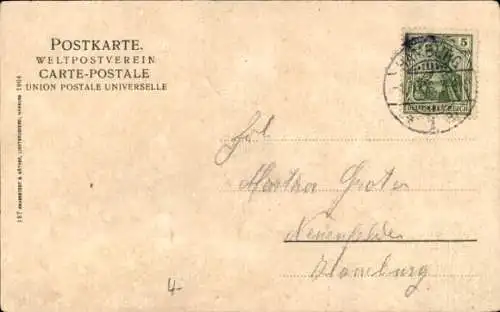 POSTKARTE.
WELTPOSTVEREIN
CARTE-POSTALE
UNION POSTALE UNIVERSELLE
5
DEUTSCHES REICH
Frl.
Martha Groter
Neuenfelde
Hamburg
4-